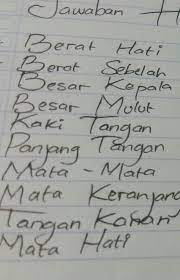 Jawaban H
Berat Hati
Berat Sebelah
Besar Kepala
Besar Mulut
Kaki Tangan
Panjang Tangan
Mata - Mata
Mata Keranjang
Tangan Kanan
Mata Hati